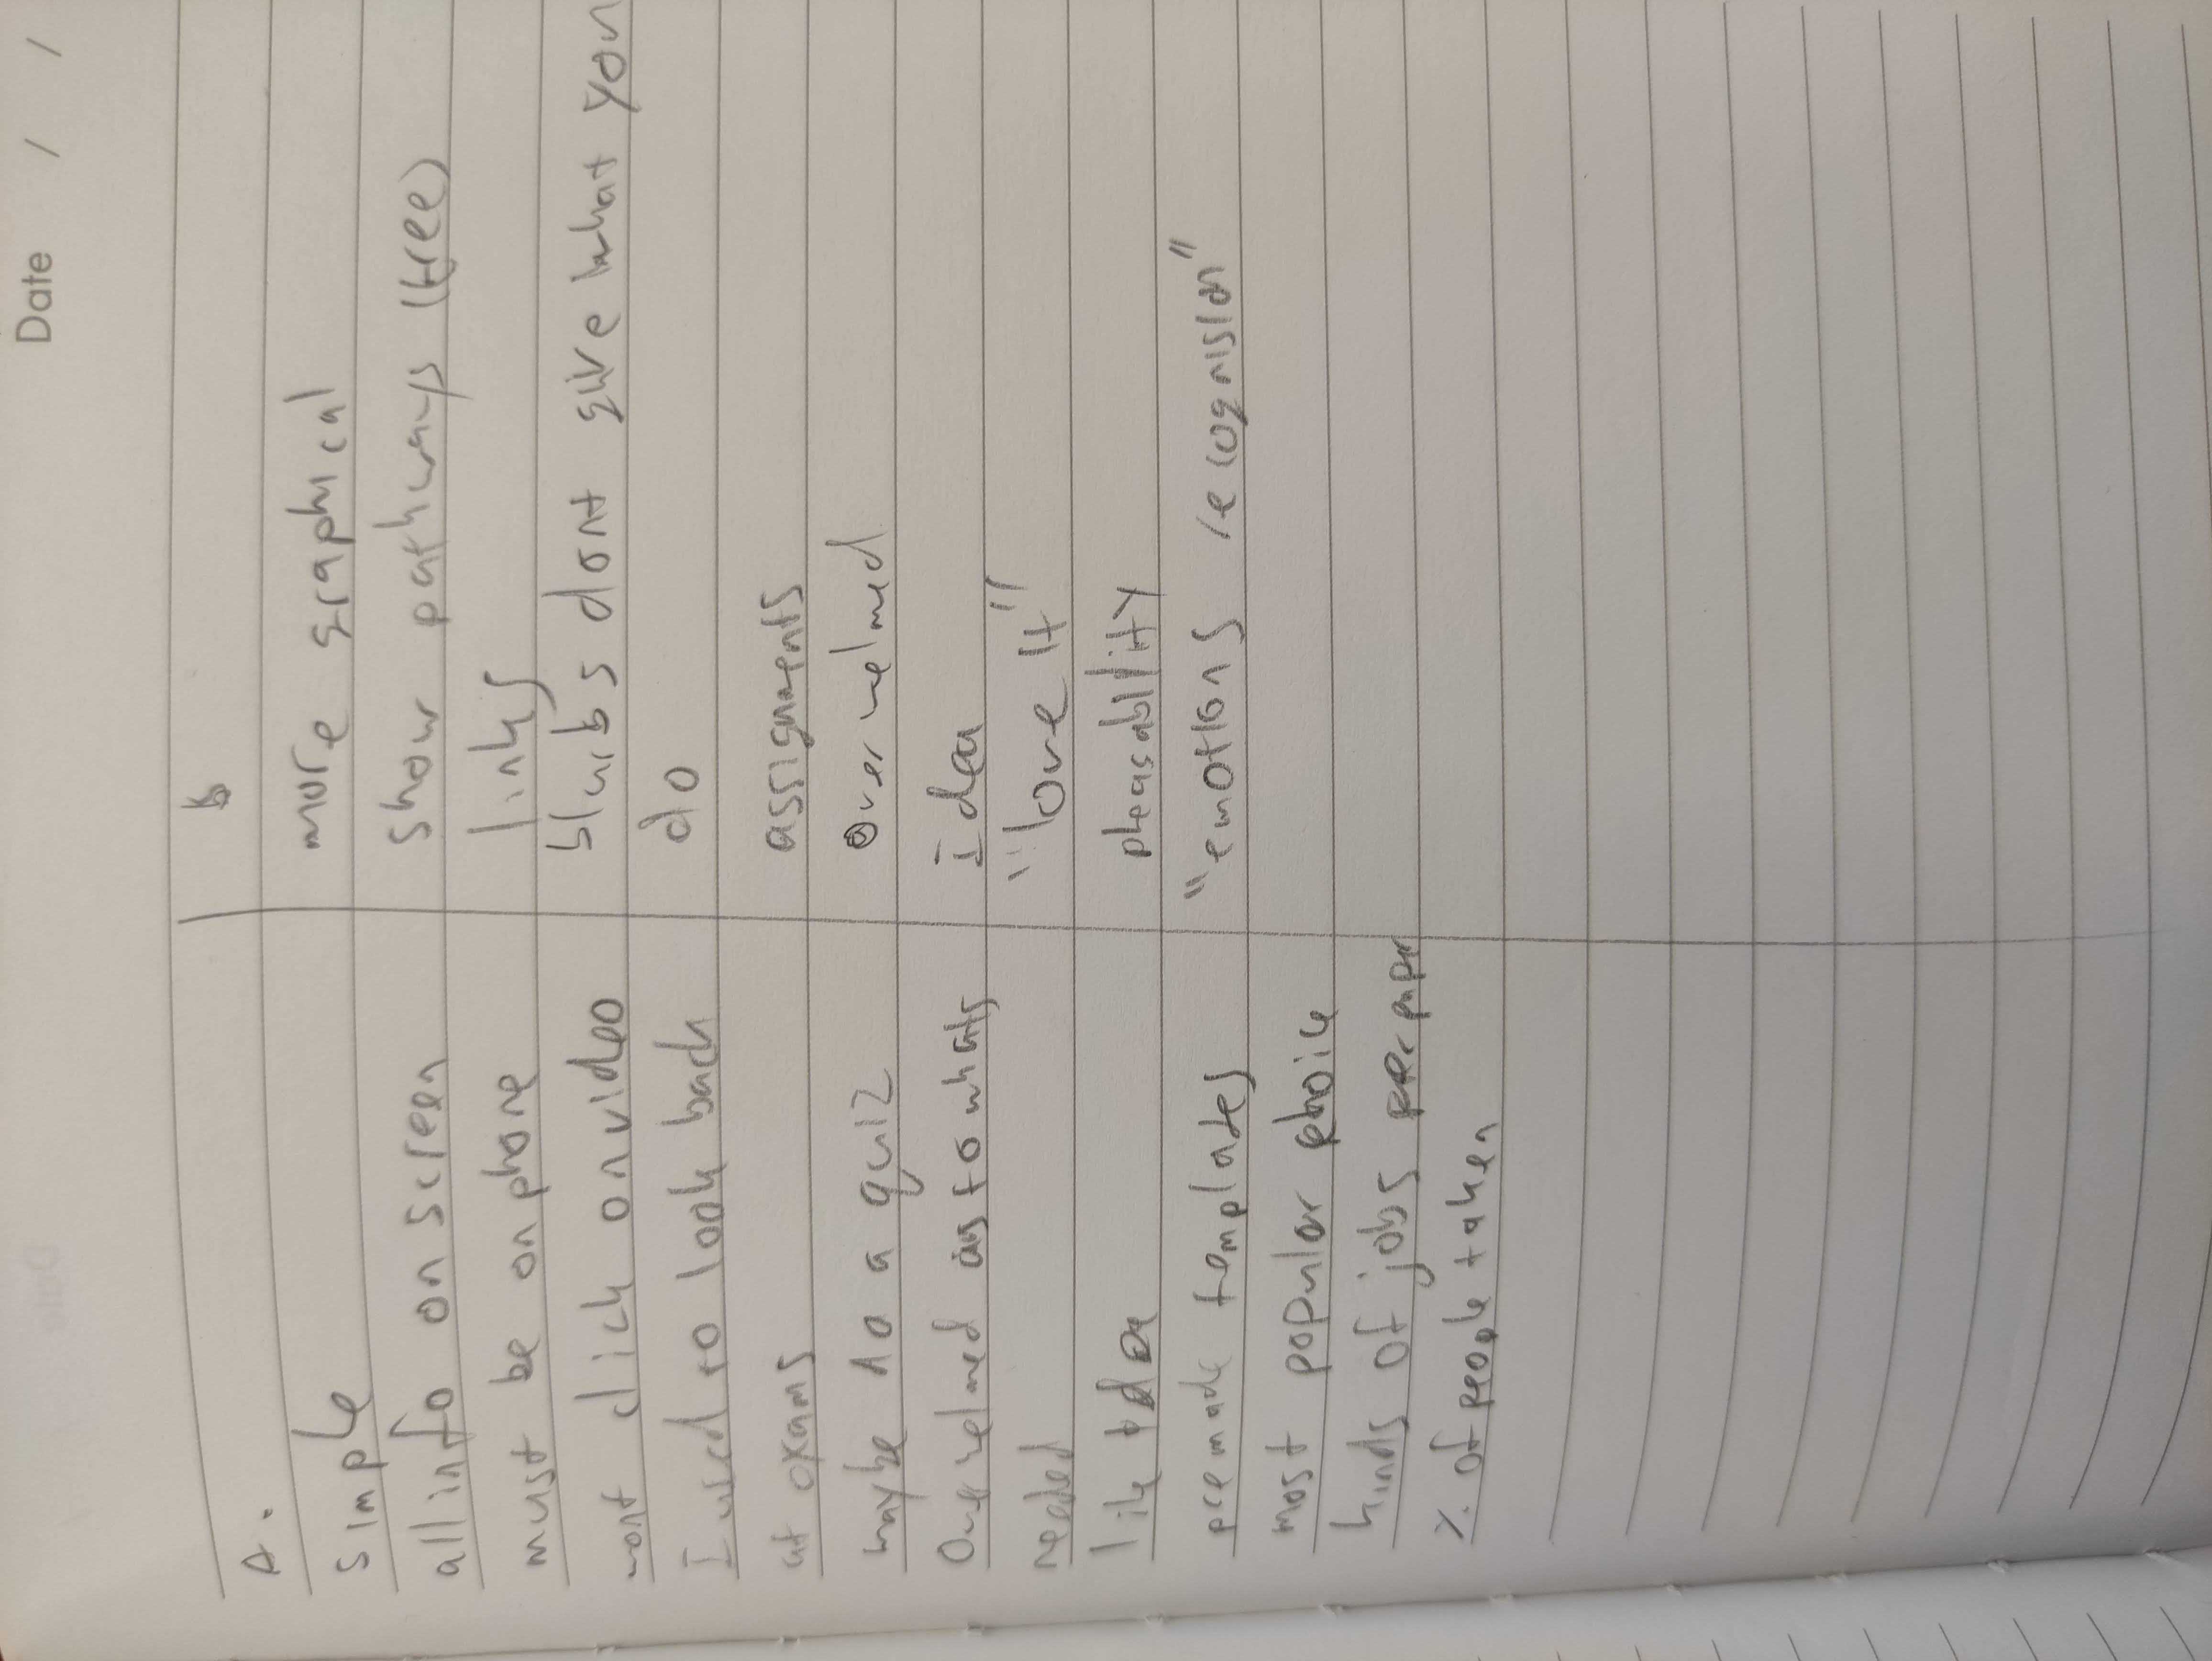 Date / /
A.
simple
all info on screen
must be on phone
wont click on video
I used to look back
at exams
maybe do a quiz
Overwelmed as to whats
needed
premade templates
most popular choice
kinds of jobs per paper
% of people taken
b
more graphical
show pathways (tree)
links
blurbs dont give what you
do
assignments
overwelmed
Idea
"love it"
pleasability
"emotions recognision"